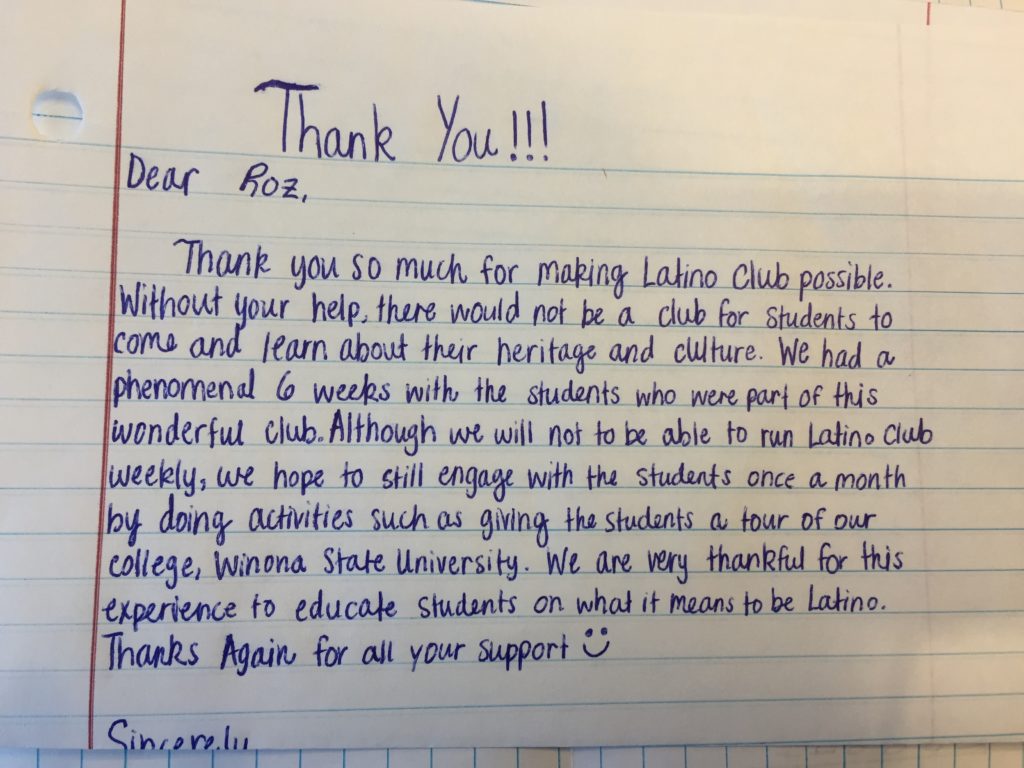 Thank You!!!
Dear Roz,
Thank you so much for making Latino Club possible.
Without your help, there would not be a club for students to
come and learn about their heritage and culture. We had a
phenomenal 6 weeks with the students who were part of this
wonderful club. Although we will not to be able to run Latino Club
weekly, we hope to still engage with the students once a month
by doing activities such as giving the students a tour of our
college, Winona State University. We are very thankful for this
experience to educate students on what it means to be Latino.
Thanks Again for all your support
Sincerely